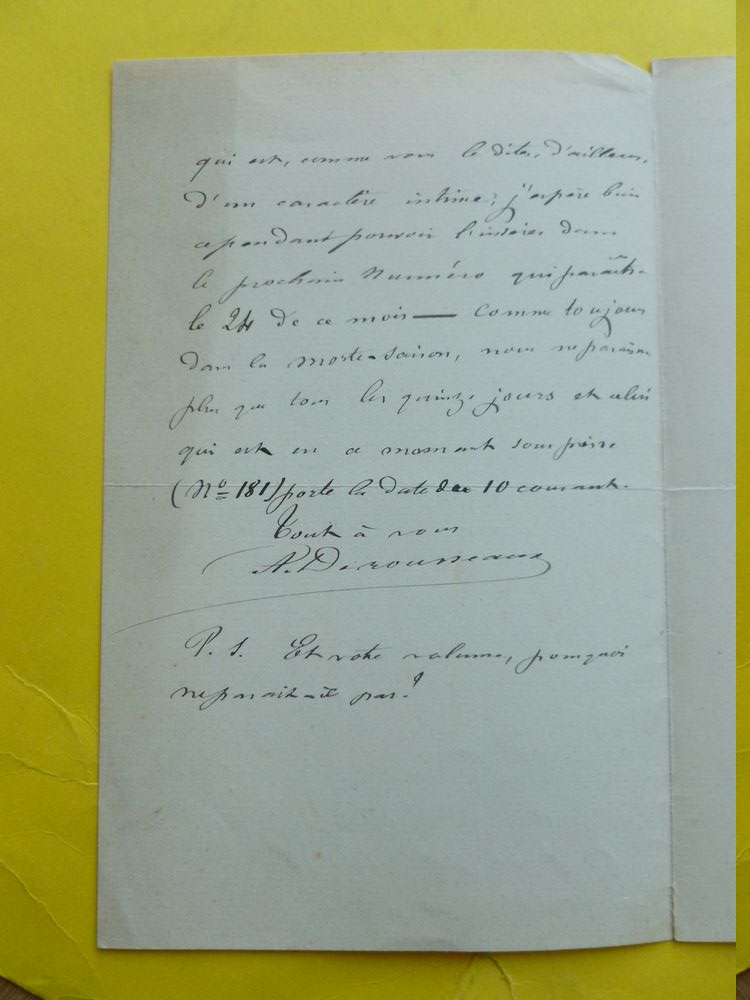 qui est, comme vous le dites, d'ailleurs,
d'un caractère intime; j'espère bien
cependant pouvoir l'insérer dans
le prochain Numéro qui paraîtra
le 24 de ce mois — Comme toujours
dans la morte-saison, nous ne paraissons
plus que tous les quinze jours et celui
qui est en ce moment sous presse
(Nº 181) porte la date du 10 courant.
Tout à vous
A. Desrousseaux
P. S. Et votre volume, pourquoi
ne parait-il pas?